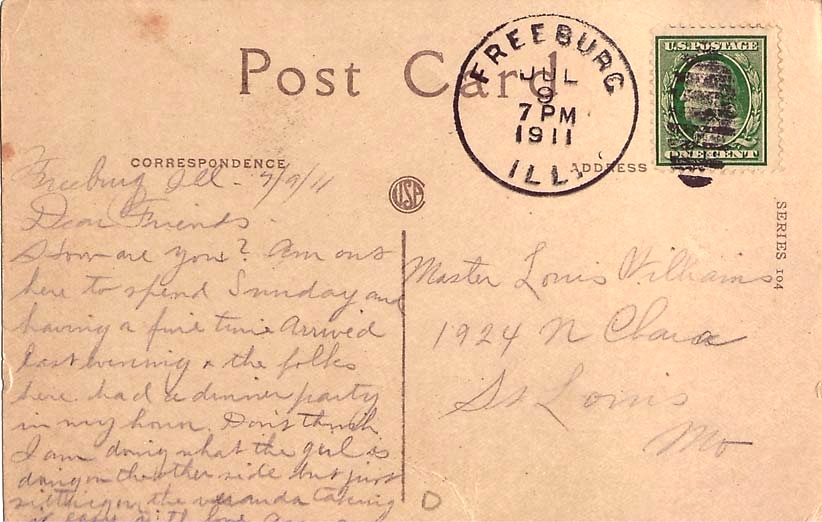 Post Card
FREEBURG
JUL
9
7 PM
1911
ILL.
U.S. POSTAGE
ONE CENT
CORRESPONDENCE
ADDRESS
USA
SERIES 104
Freeburg Ill - 7/9/11
Dear Friends -
How are you? Am out
here to spend Sunday and
having a fine time Arrived
last evening & the folks
here had a dinner party
in my honor. Don't think
I am doing what the girl is
doing on the other side but just
sitting on the veranda taking
it easy with love
Master Louis Williams
1924 N Clara
St Louis
Mo
D